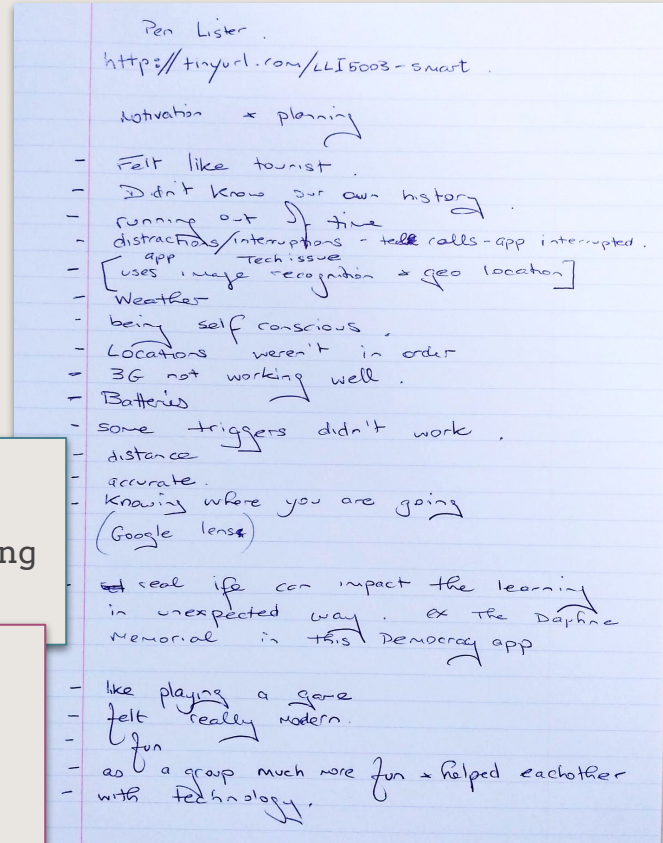 Pen Lister.
https://tinyurl.com/LLI5003-smart.
Motivation & planning
- Felt like tourist.
- Didn't know our own history.
- running out of time
- distractions/interruptions - calls - app interrupted.
app Tech issue
- [uses image recognition & geo location]
- Weather
- being self conscious.
- Locations weren't in order
- 3G not working well.
- Batteries
- some triggers didn't work.
- distance
- accurate.
- Knowing where you are going
(Google lens)
ng
- real ife can impact the learning
in unexpected way. ex The Daphne
Memorial in this Democracy app
- like playing a game
- felt really modern.
- fun
- as a group much more fun & helped eachother
- with technology.